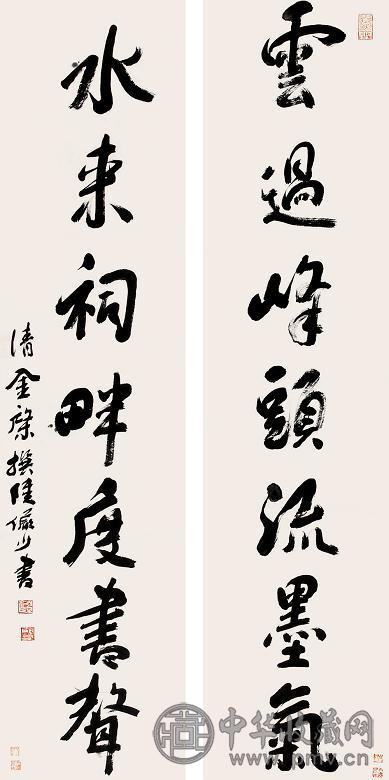 雲過峰頭流墨氣
水來祠畔度書聲
清金榮撰陸儼少書
中华收藏网
www.pmv.cn